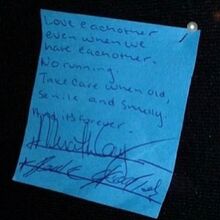 Love eachother
even when we
hate eachother.
No running.
Take care when old,
senile and smelly.
it's forever